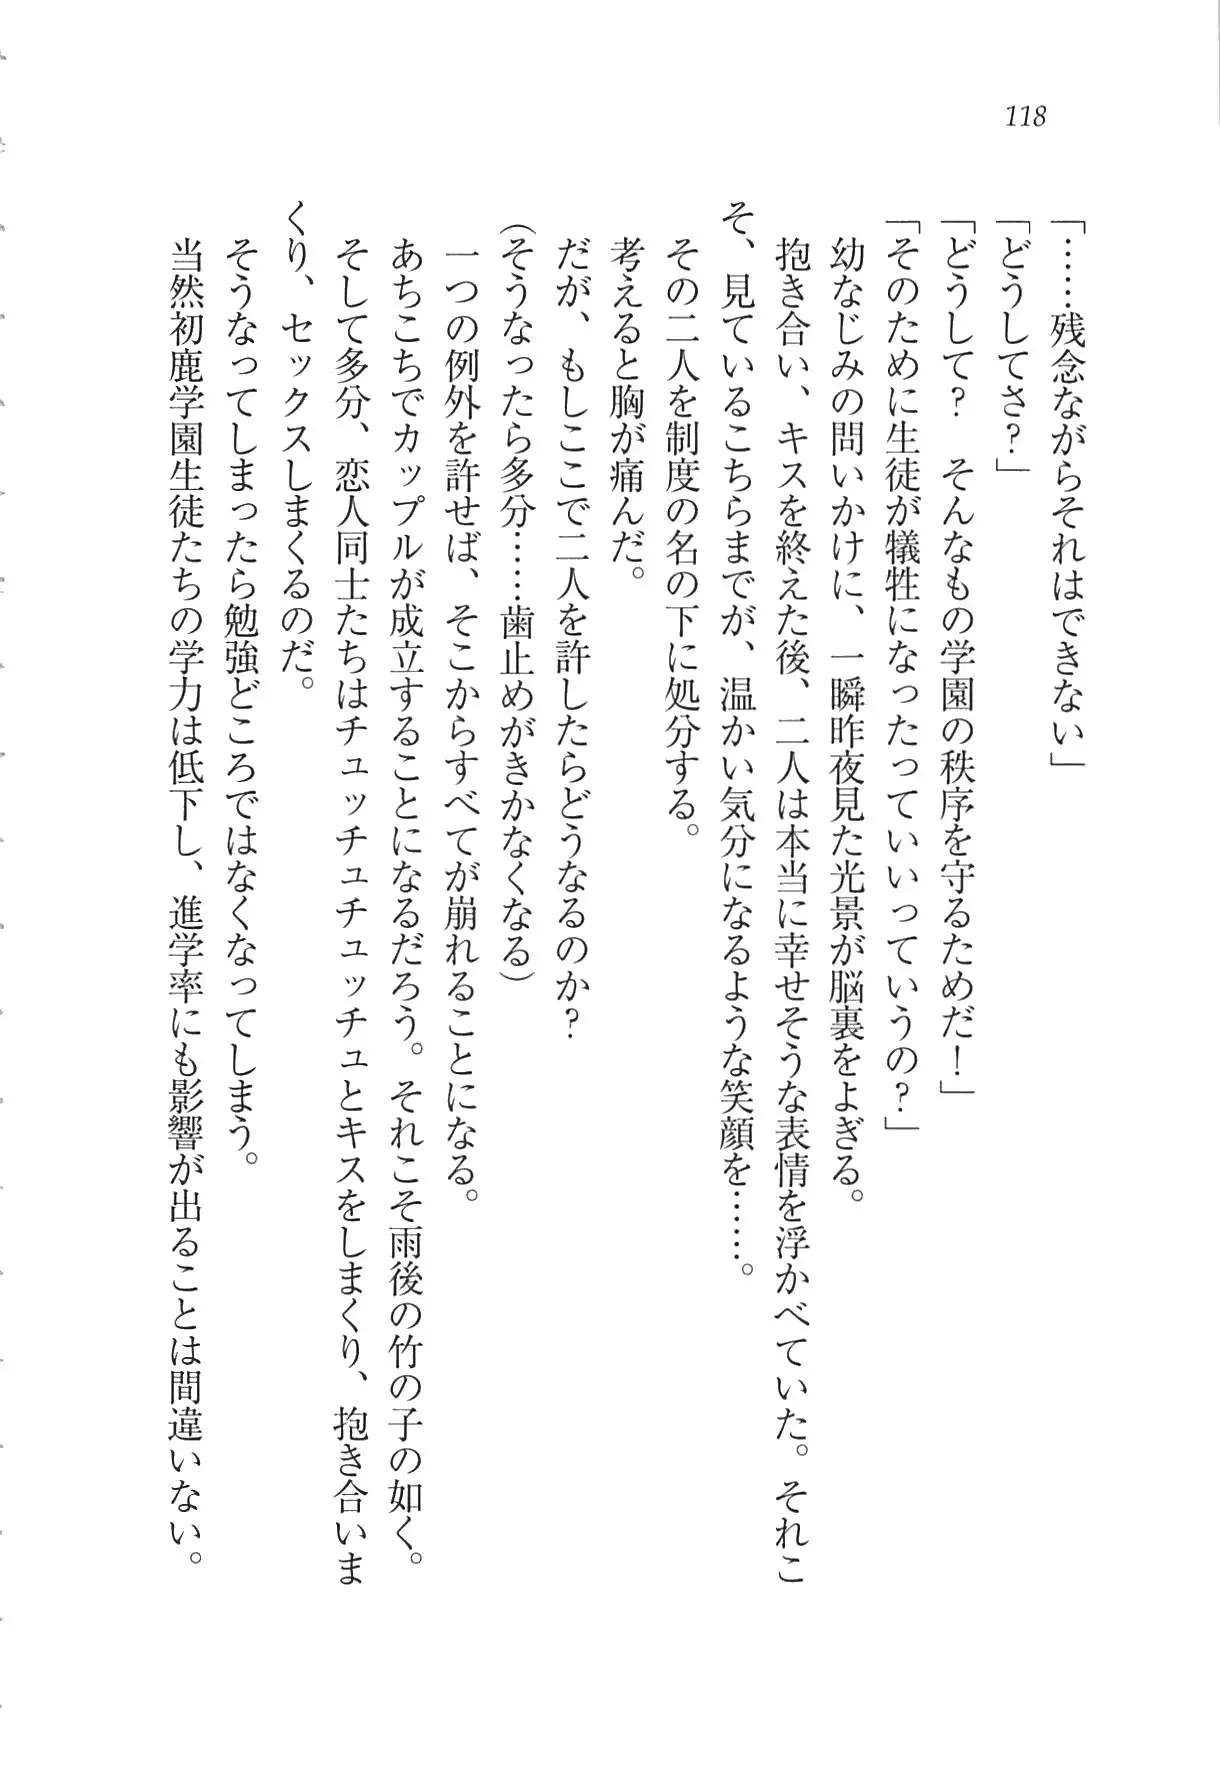 118
「……残念ながらそれはできない」
「どうしてさ？」
「どうして？　そんなもの学園の秩序を守るためだ！」
「そのために生徒が犠牲になったっていいっていうの？」
幼なじみの問いかけに、一瞬昨夜見た光景が脳裏をよぎる。
抱き合い、キスを終えた後、二人は本当に幸せそうな表情を浮かべていた。それこ
そ、見ているこちらまでが、温かい気分になるような笑顔を……。
その二人を制度の名の下に処分する。
考えると胸が痛んだ。
だが、もしここで二人を許したらどうなるのか？
（そうなったら多分……歯止めがきかなくなる）
一つの例外を許せば、そこからすべてが崩れることになる。
あちこちでカップルが成立することになるだろう。それこそ雨後の竹の子の如く。
そして多分、恋人同士たちはチュッチュチュッチュとキスをしまくり、抱き合いま
くり、セックスしまくるのだ。
そうなってしまったら勉強どころではなくなってしまう。
当然初鹿学園生徒たちの学力は低下し、進学率にも影響が出ることは間違いない。